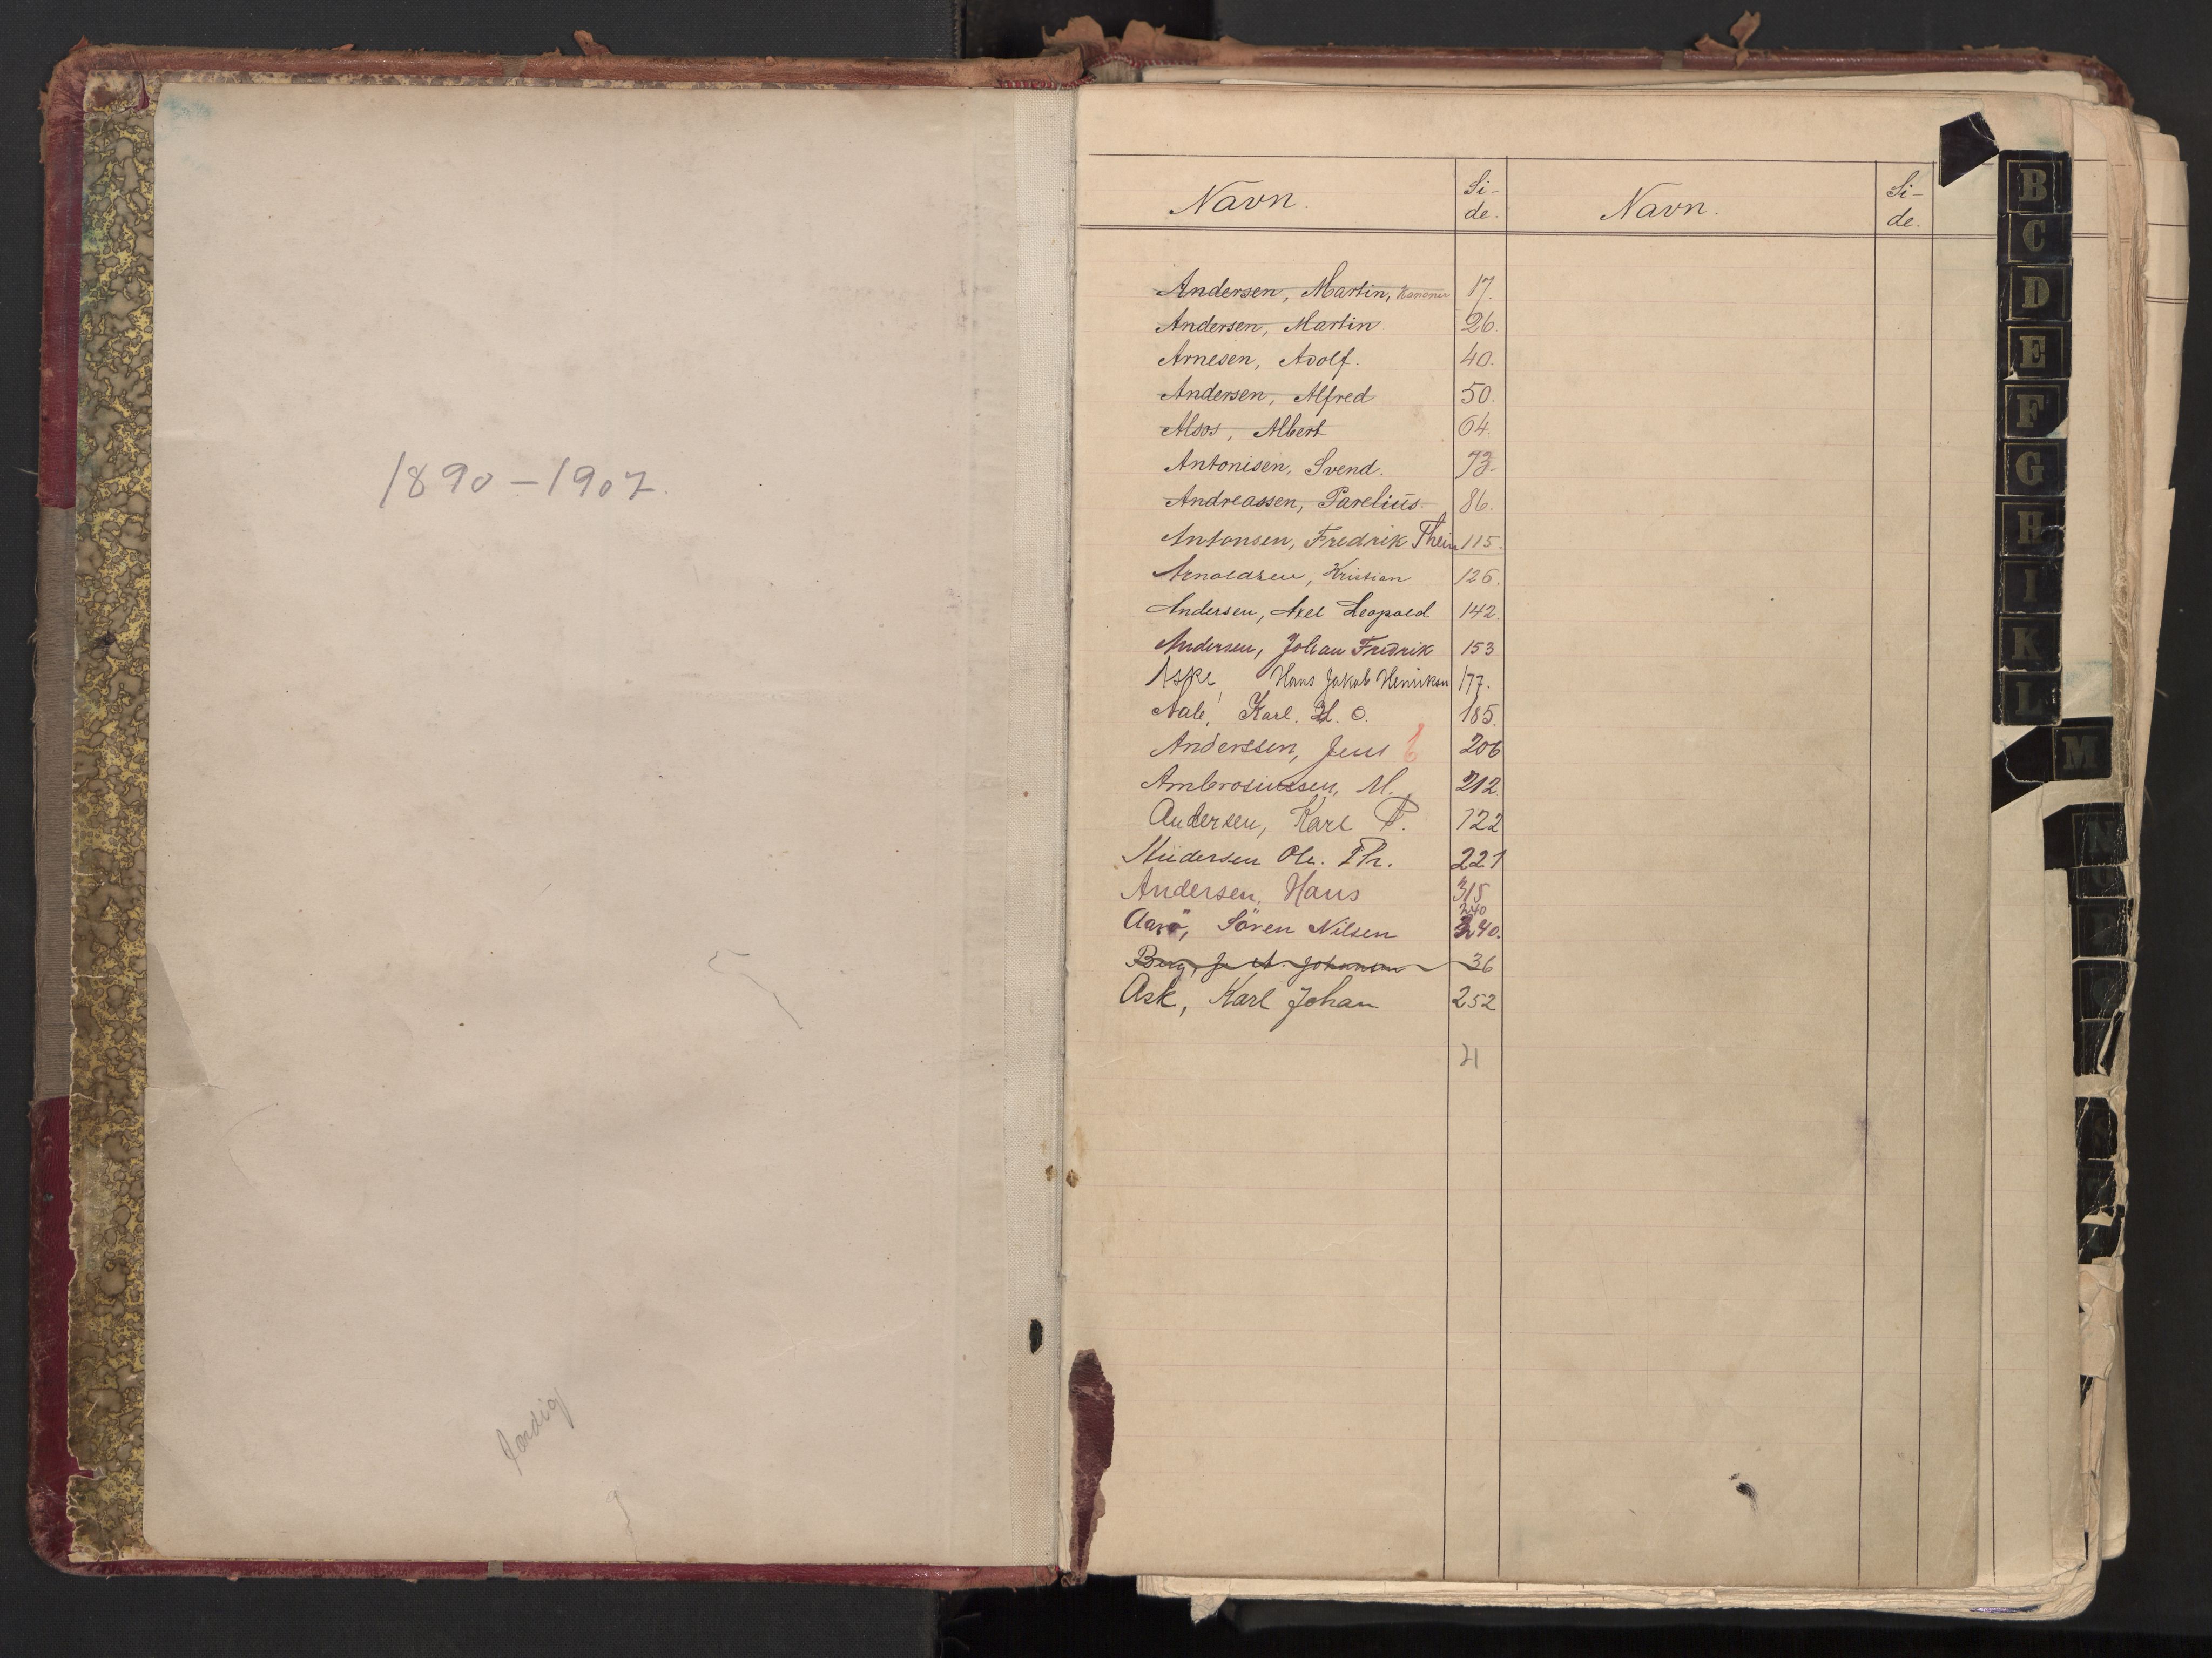 1890-1907.
Færdig
Navn. Si-de. Navn. Si-de.
Andersen, Martin, 17.
Andersen, Martin. 26.
Arnesen, Adolf. 40.
Andersen, Alfred 50.
Alsos, Albert 64.
Antonisen, Svend. 73.
Andreassen, Parelius. 86.
Antonsen, Fredrik Thein 115.
Arnoldsen, Kristian 126.
Andersen, Axel Leopold 142.
Andersen, Johan Fredrik 153
Aspe, Hans Jakob Henriksen 177.
Karl. H. O. 185.
Anderssen, Jens 206
Ambrosiussen, M. 212
Andersen, Karl P. 122
Andersen Ole. Th. 221
Andersen, Hans 315
240
Aarö, Sören Nilsen 240.
Berg, J. A. Johansen 36
Ask, Karl Johan 252
21
B
C
D
E
F
G
H
I
K
L
M
N